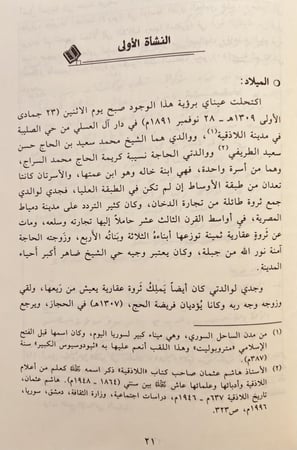 النشأة الأولى
○ الميلاد:
اكتحلت عيناي برؤية هذا الوجود صبح يوم الاثنين (٢٣ جمادى
الأولى ١٣٠٩هـ - ٢٨ نوفمبر ١٨٩١م) في دار آل العسلي من حي الصليبة
في مدينة اللاذقية(١)، ووالدي هما الشيخ محمد سعيد بن الحاج حسن
سعيد الطريفي(٢) ووالدتي الحاجة نسيبة كريمة الحاج محمد السراج،
وهما من أسرة واحدة، فهي ابنة خاله وهو ابن عمتها، والأسرتان كانتا
تعدان من طبقة الأوساط إن لم تكن في الطبقة العليا، فجدي لوالدي
جمع ثروة طائلة من تجارة الدخان، وكان كثير التردد على مدينة دمياط
المصرية، في أواسط القرن الثالث عشر حاملاً إليها تجارته وسلعه، ومات
عن ثروة عقارية ثمينة توزعها أبناءُه الثلاثة وبناتُه الأربع، وزوجته الحاجة
آمنة نور الله من جبلة، وكان يعتبر وجيه حي الشيخ ضاهر أكبر أحياء
المدينة.
وجدي لوالدتي كان أيضاً يَملِكُ ثروة عقارية يعيش من رَيعها، ولقي
وزوجه وجه ربه وكانا يُؤديان فريضة الحج، (١٣٠٧هـ) في الحجاز، ويرجع
(١) من مدن الساحل السوري، وهي ميناء كبير لسوريا اليوم، وكان اسمها قبل الفتح
الإسلامي «متروبوليت» وهذا اللقب أنعم عليها به «ثيودوسيوس الكبير» سنة
(٣٨٧م).
(٢) الأستاذ هاشم عثمان صاحب كتاب «اللاذقية» ذكر اسمه كعلم من أعلام
اللاذقية وأدبائها وعلمائها عاش بين سنتي (١٨٦٤ - ١٩٤٨م). هاشم عثمان،
تاريخ اللاذقية ٦٣٧م - ١٩٤٦م، دراسات اجتماعية، وزارة الثقافة، دمشق، سوريا،
١٩٩٦م، ص٣٢٣.
٢١